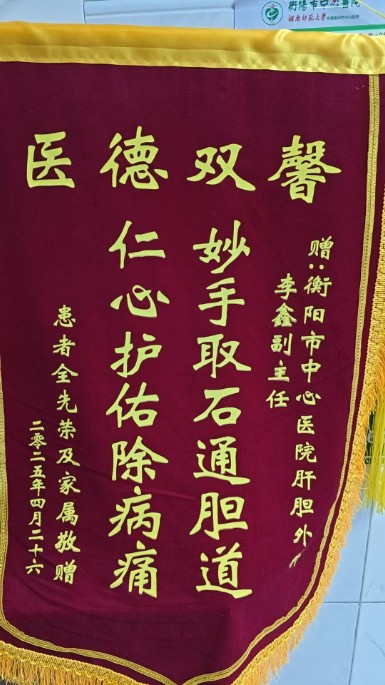 衡阳市中心医院
湖南师范大学
医德双馨
赠：衡阳市中心医院肝胆外
李鑫副主任
妙手取石通胆道
仁心护佑除病痛
患者全先荣及家属敬赠
二零二五年四月二十六